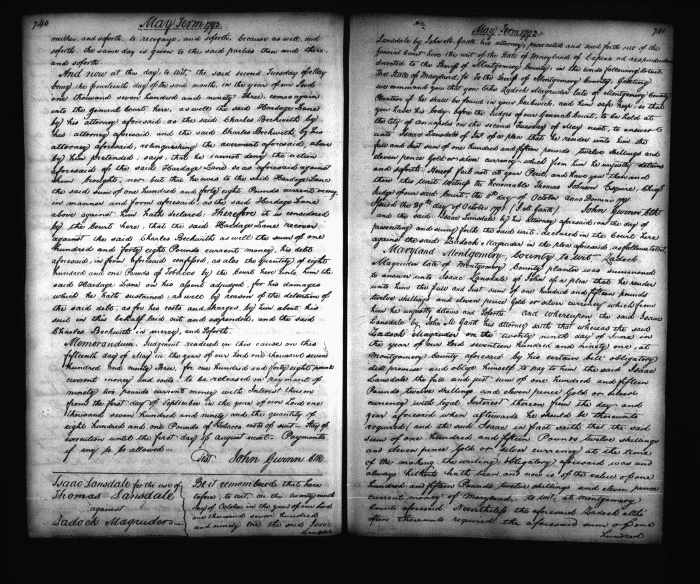 740
May Term 1793
neither, and soforth, to recognize, and soforth, because as well, and
soforth, the same day is given to the said parties then and there,
and soforth
And now at this day, to wit, the said second Tuesday of May
being the fourteenth day of the said month, in the year of our Lord
one thousand seven hundred and ninety three, comes again
into the general court here, as well the said Hardage Lane
by his attorney aforesaid, as the said Charles Beckwith by
his attorney aforesaid, and the said Charles Beckwith by his
attorney aforesaid, relinquishing the averment aforesaid, above
by him pretended, says, that he cannot deny the action
aforesaid of the said Hardage Lane so as aforesaid against
him brought, nor but that he owes to the said Hardage Lane
the said sum of one hundred and forty eight Pounds current money
in manner and form aforesaid, as the said Hardage Lane
above against him hath declared. Therefore it is considered
by the Court here, that the said Hardage Lane recover
against the said Charles Beckwith as well the sum of one
hundred and forty eight Pounds current money, his debt
aforesaid, in form aforesaid confessed, as also the quantity of eight
hundred and one Pounds of Tobacco by the Court here unto him the
said Hardage Lane on his assent adjudged, for his damages
which he hath sustained, as well by reason of the detention of
the said debt, as for his costs and charges by him about his
suit in this behalf laid out and expended, and the said
Charles Beckwith in mercy, and soforth.
Memorandum. Judgment rendered in this cause on this
fifteenth day of May in the year of our Lord one thousand seven
hundred and ninety three, for one hundred and forty eight pounds
current money and costs, to be released on payment of
ninety two pounds current money with Interest thereon
from the first day of September in the year of our Lord one
thousand seven hundred and ninety and the quantity of
eight hundred and one Pounds of Tobacco costs of suit. Stay of
execution until the first day of August next. Payments
if any to be allowed.
Test John Gwinn Clk.
Isaac Lansdale for the use of
Thomas Lansdale
against
Zadock Magruder
Be it remembered that here
tofore, to wit, on the twenty ninth
day of October in the year of our Lord
one thousand seven hundred
and ninety two the said Isaac
Lansdale
May Term 1793
741
Lansdale by John M. Gantt his attorney, prosecuted and sued forth out of the
general court here the writ of the State of Maryland of Capias ad respondendum
directed to the Sheriff of Montgomery County, in the words following, to wit.
The State of Maryland to the Sheriff of Montgomery County Greeting
we command you that you take Zadock Magruder late of Montgomery County
Planter if he shall be found in your bailiwick, and him safe keep, so that
you have his body before the Judges of our General Court, to be held at
the City of Annapolis on the second Tuesday of May next, to answer
unto Isaac Lansdale of of a plea that he render unto him the
full and just sum of one hundred and fifteen pounds twelve shillings and
eleven pence Gold or silver currency which from him he unjustly detains
and soforth. Hereof fail not at your Peril and have you then and
there this writ. Witness the honorable Thomas Johnson Esquire, Chief
Judge of our said Court, the day of October Anno Domini 1792
Issued the 29th day of October 1792 John Gwinn Clk
and the said Isaac Lansdale by his attorney aforesaid, on the day of
presenting and suing forth the said writ, declared in the Court here
against the said Zadock Magruder in the plea aforesaid, as follows, to wit.
Maryland Montgomery County to wit Zadock
Magruder late of Montgomery County planter was summoned
to answer unto Isaac Lansdale of a plea that he render
unto him the full and just sum of one hundred and fifteen pounds
twelve shillings and eleven pence Gold or silver currency which from
him he unjustly detains and soforth. And whereupon the said Isaac
Lansdale by John M. Gantt his attorney saith that whereas the said
Zadock Magruder on the twenty ninth day of June in
the year of our Lord seventeen hundred and ninety one at
Montgomery County aforesaid by his certain bill obligatory
did promise and oblige himself to pay to him the said Isaac
Lansdale the full and just sum of one hundred and fifteen
Pounds twelve shillings and eleven pence Gold or silver
currency with legal Interest thereon from the day and
year aforesaid when afterwards he should be thereunto
required, and the said Isaac in fact saith that the said
sum of one hundred and fifteen Pounds twelve shillings
and eleven pence Gold or silver currency at the time
of the making the writing obligatory aforesaid was and
always hitherto hath been and now is of the value of one
hundred and fifteen Pounds twelve shillings and eleven pence
current money of Maryland, to wit, at Montgomery
County aforesaid. Nevertheless the aforesaid Zadock altho'
often thereunto required the aforesaid sum of one
hundred